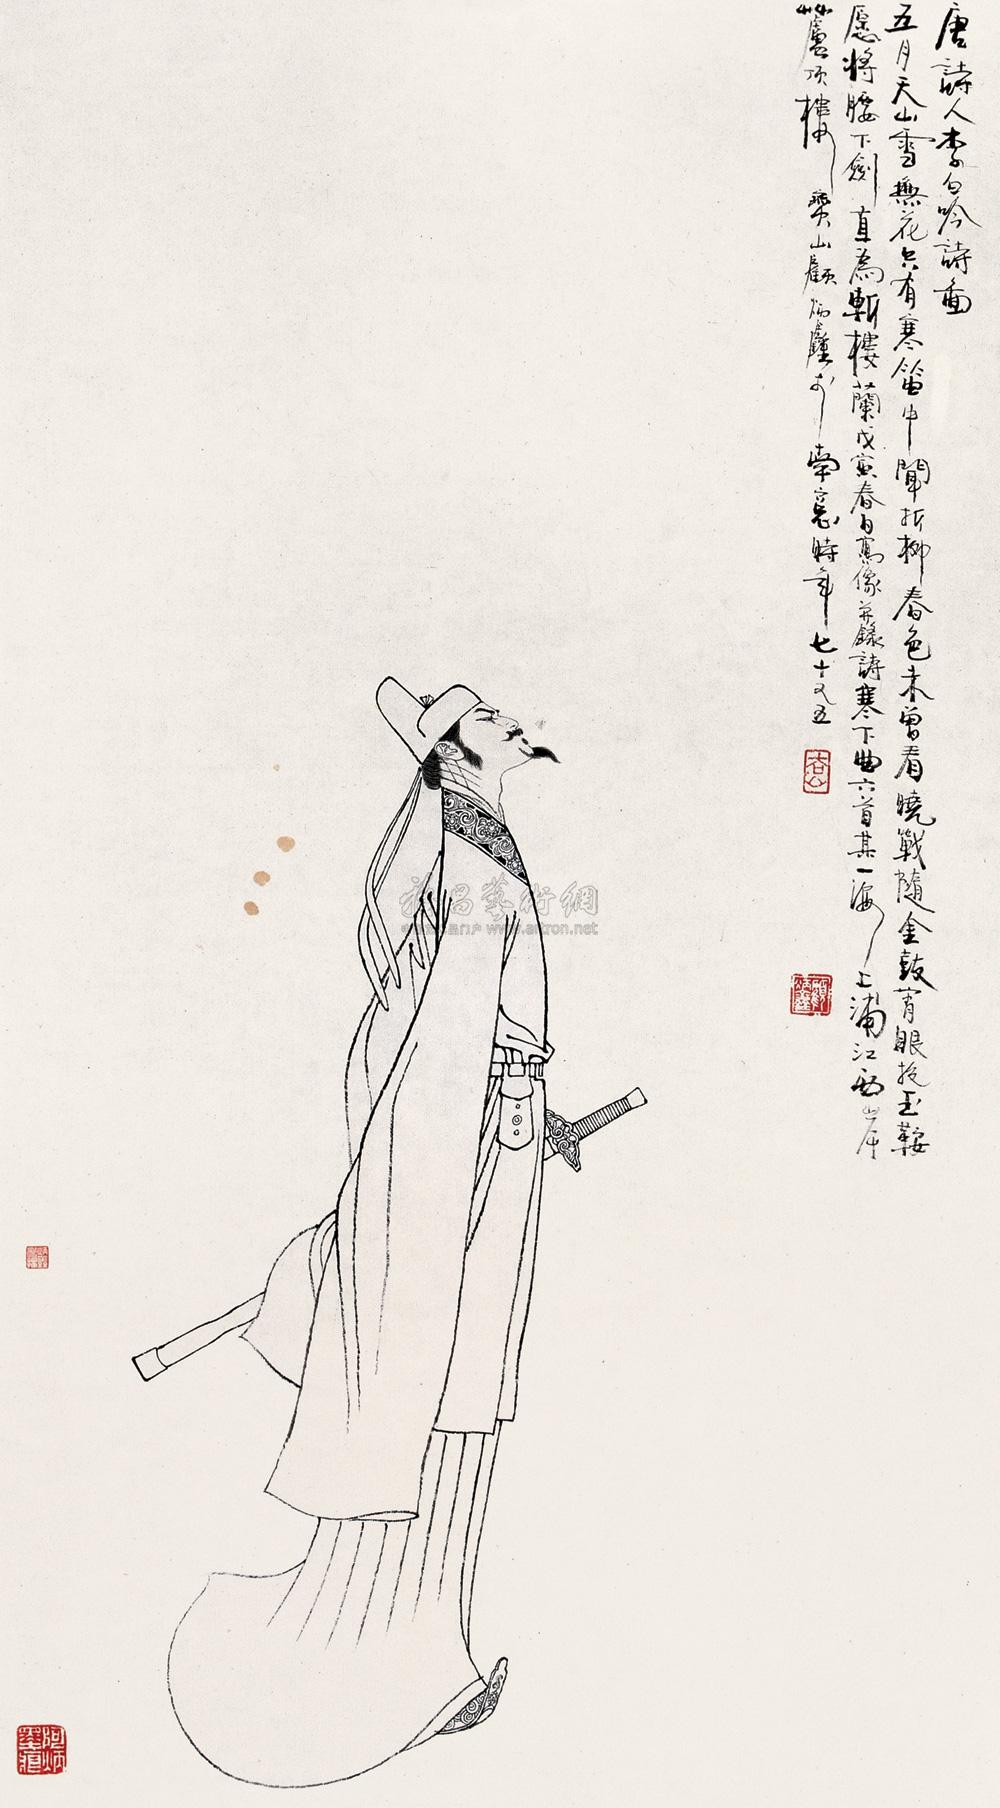 唐詩人李白吟詩圖
五月天山雪無花只有寒笛中聞折柳春色未曾看曉戰隨金鼓宵眠抱玉鞍
愿將腰下劍直為斬樓蘭戊寅春日寫像并錄詩塞下曲六首其一海上浦江西岸
蘆頂樓寶山顧炳鑫於南窗時年七十又五
顧炳鑫
阿炳
雅昌藝術網
www.artron.net